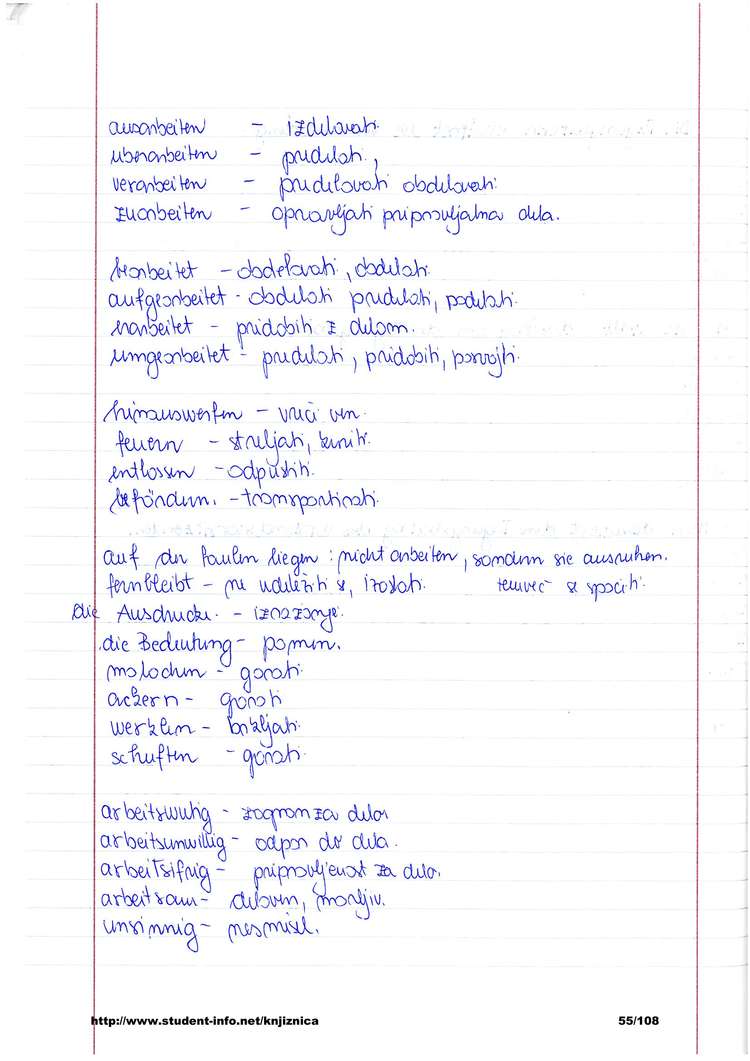 ausarbeiten - izdelovati
überarbeiten - predelati,
verarbeiten - predelovati obdelovati
zuarbeiten - opravljati pripravljalna dela.
bearbeitet - obdelovati, obdelati
aufgearbeitet - obdelati predelati, podelati
erarbeitet - pridobiti z delom.
umgearbeitet - predelati, pridobiti,
hinauswerfen - vreči ven.
feuern - streljati, kuriti.
entlassen - odpustiti.
befördern. - transportirati.
auf der faulen liegen : nicht arbeiten, sondern sie ausruhen.
fernbleibt - ne udeležiti se, izostati. temveč se spočiti.
die Ausdrucke. - izražanje.
die Bedeutung - pomen.
malochen - garati
ackern - garati
werkeln - brkljati
schuften - garati.
arbeitswutig - zagrom za delo
arbeitsunwillig - odpor do dela.
arbeitseifrig - pripravljenost za delo.
arbeitsam - delaven, marljiv.
unsinnig - nesmisel.
http://www.student-info.net/knjiznica 55/108